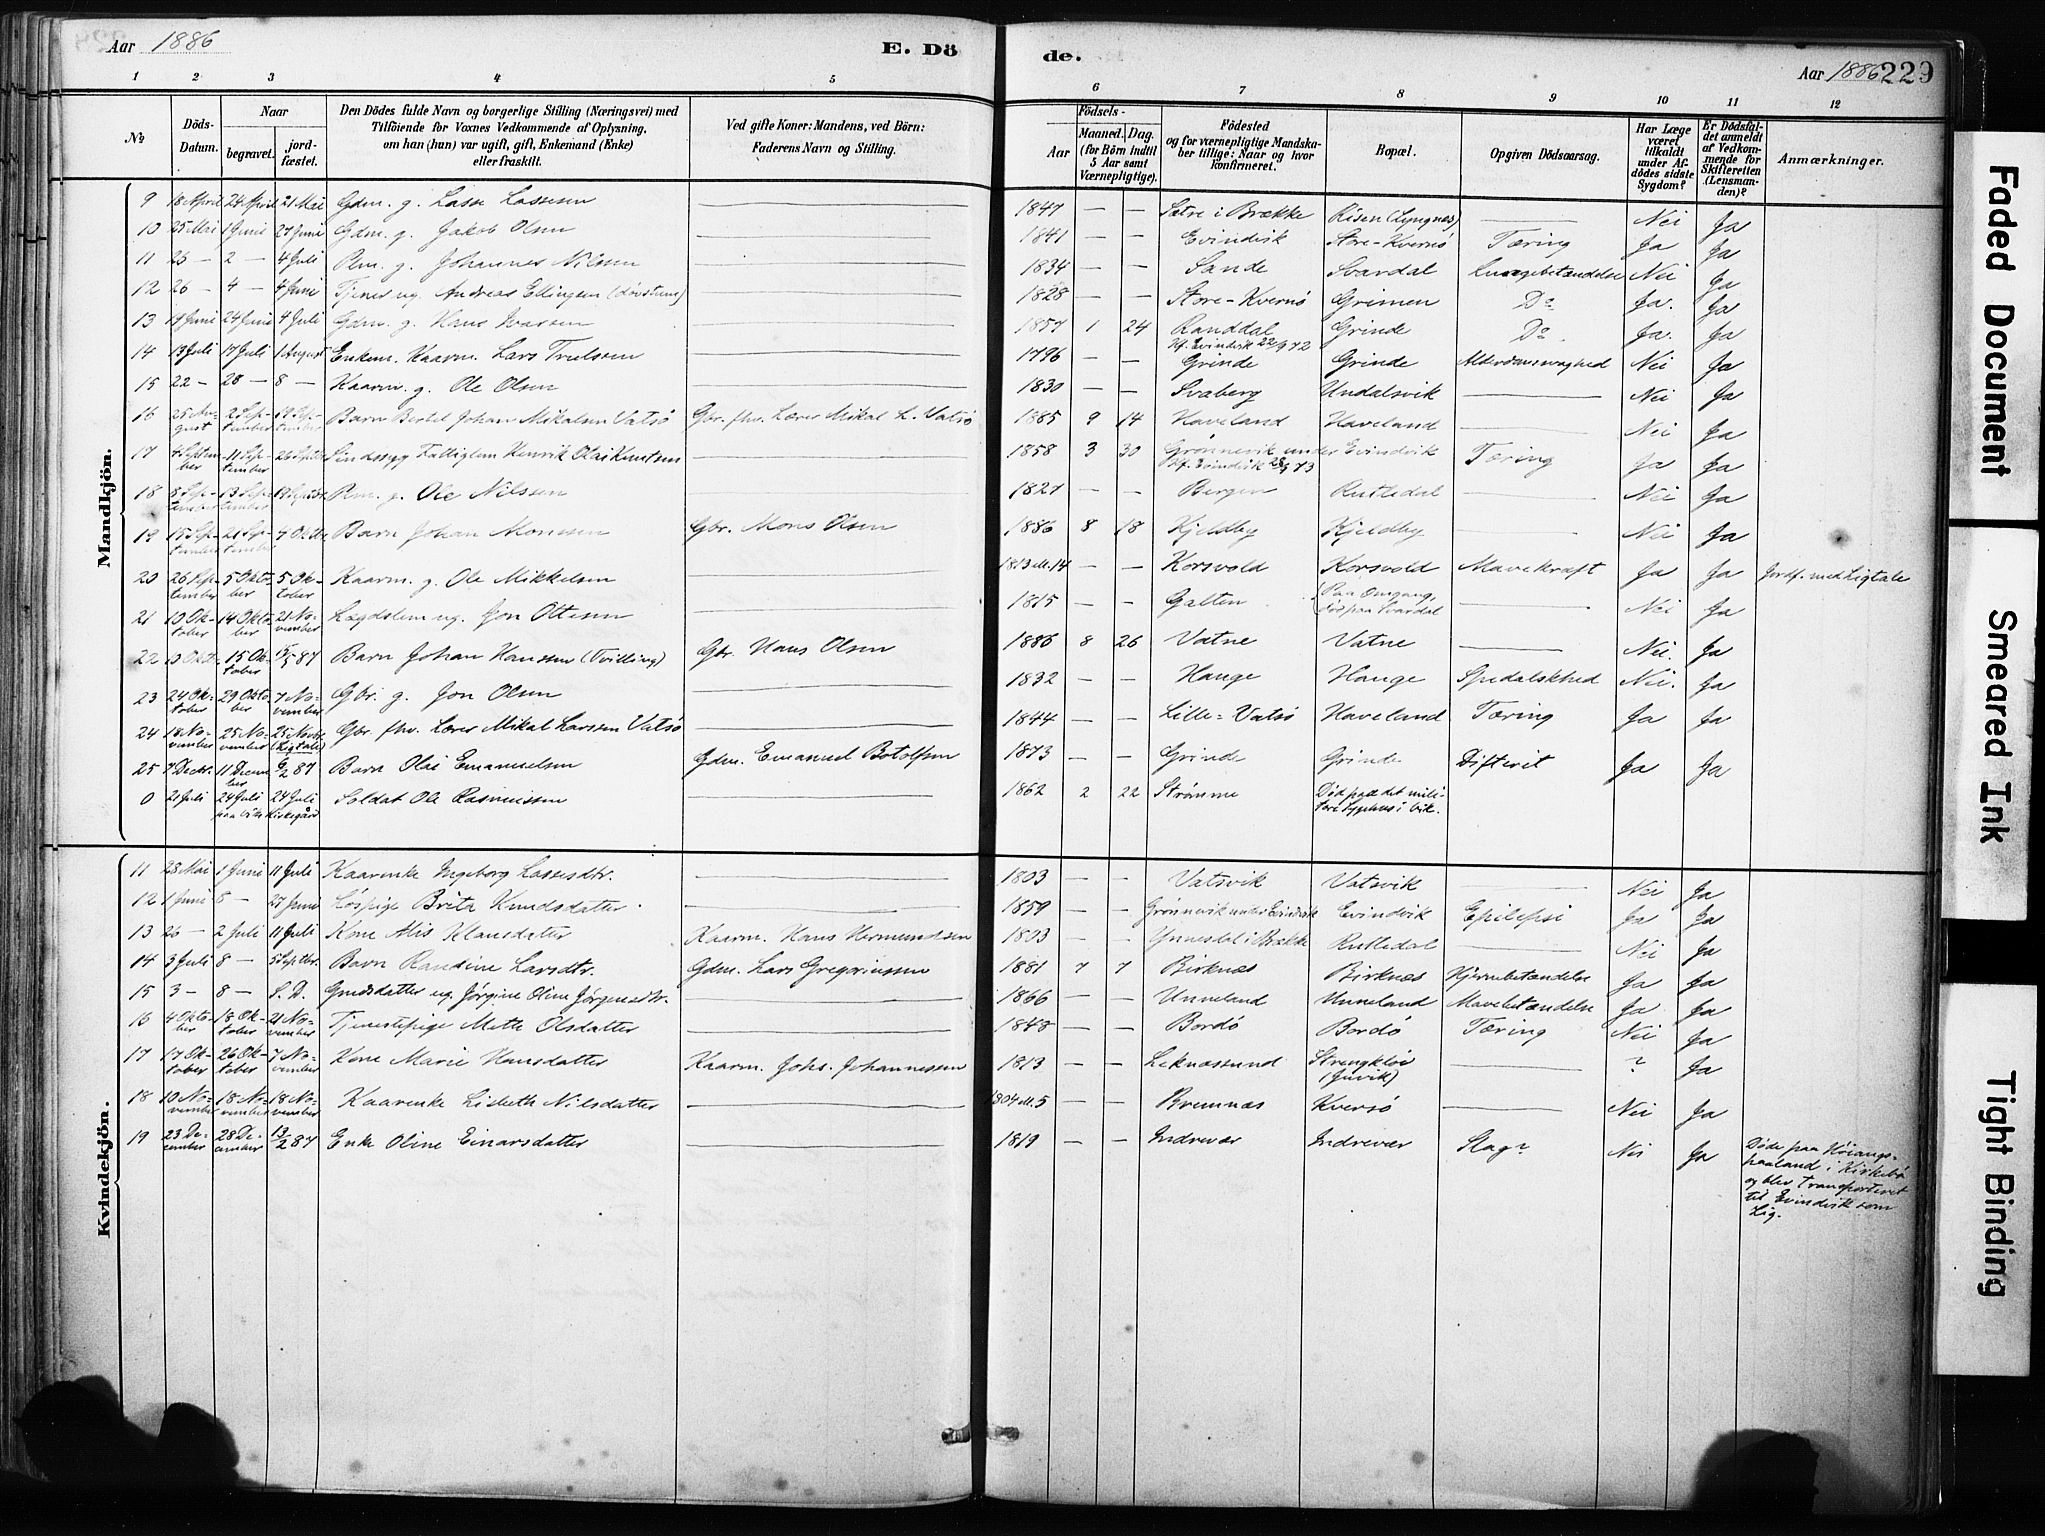 Aar 1886
E. Dö
de.
Aar 1886
229
1 2 3 4 5 6 7 8 9 10 11 12
No
Döds-Datum.
Naar
begravet.
jord-fæstet.
Den Dödes fulde Navn og borgerlige Stilling (Næringsvei) med
Tilföiende for Voxnes Vedkommende af Oplysning,
om han (hun) var ugift, gift, Enkemand (Enke)
eller fraskilt.
Ved gifte Koner: Mandens, ved Börn:
Faderens Navn og Stilling.
Födsels-
Aar
Maaned. Dag.
(for Börn indtil
5 Aar samt
Værnepligtige).
Födested
og for værnepligtige Mandska-
ber tillige: Naar og hvor
konfirmeret.
Bopæl.
Opgiven Dödsaarsag.
Har Læge
været
tilkaldt
under Af-
dödes sidste
Sygdom?
Er Dödsfal-
det anmeldt
af Vedkom-
mende for
Skifteretten
(Lensman-
den)?
Anmærkninger.
Mandkjön.
9 18 April 24 April 21 Mai Gdm. g. Lasse Lassesen 1847 — — Sætre i Brække Risen (Lyngnes) — Nei Ja
10 25 Mai 1 Juni 27 Juni Gdm. g. Jakob Olsen 1841 — — Evindvik Store-Kversö Tæring Ja Ja
11 25 — 2 — 4 Juli Plm. g. Johannes Nilssen 1834 — — Sande Svardal Lungebetændelse Nei Ja
12 26 — 4 — 4 Juni Tjenes ug. Andreas Ellingsen (dövstum) 1828 — — Store-Kversö Grimen Do Ja. Ja
13 19 Juni 24 Juni 4 Juli Gdm. g. Hans Ivarsen 1857 1 24 Randdal Kf. Evindvik 22/9 72 Grinde Do. Ja. Ja
14 13 Juli 17 Juli 1 August Enkem. Kaarm. Lars Trulsen 1796 — — Grinde Grinde Alderdomssvaghed Nei Ja
15 22 — 28 — 8 — Kaarm. g. Ole Olsen 1830 — — Svaberg Undalsvik — Nei Ja
16 25 August 2 September 19 September Barn Bertel Johan Mikalsen Vatsö Gbr. fhv. Lærer Mikal L. Vatsö 1885 9 14 Haveland Haveland — Nei Ja
17 4 September 11 September 26 Septbr. Sindssyg Fattiglem Henrik Olai Knutsen 1858 3 30 Grønnevik under Evindvik Tæring Ja Ja
18 8 September 13 September 19 Septbr. Plm. g. Ole Nilssen 1827 — — Bergen Rutledal — Nei Ja
19 15 September 21 September 4 Oktbr. Barn Johan Monssen Gbr. Mons Olsen 1886 8 18 Kjeldby Kjeldby — Nei Ja
20 26 September 5 Oktober 5 Oktober Kaarm. g. Ole Mikkelsen 1813 — — Korsvold Korsvold Mavekræft Ja Ja Jordf. med Ligtale
21 10 Oktober 14 Oktober 21 November Lægdslem ug. Jon Ottesen 1815 — — Galten (Paa Omgang, död paa Svardal — Nei Ja
22 10 Oktbr. 15 Oktober 87 Barn Johan Hanssen (Tvilling) Gbr. Hans Olsen 1886 8 26 Vatne Vatne — Nei. Ja
23 24 Oktober 29 Oktober 7 November Gbr. g. Jon Olsen 1832 — — Hauge Hauge Spedalskhed Nei. Ja
24 18 November 25 November 25 Novbr. (Ligtale) Gbr. fhv. Lærer Mikal Larssen Vatsö 1844 — — Lille-Vatsö Haveland Tæring Ja Ja
25 7 Decbr. 11 December 6/2 87 Barn Olai Emanuelsen Gdm. Emanuel Botolfsen 1873 — — Grinde Grinde Difterit Ja Ja
0 21 Juli 24 Juli 24 Juli Soldat Ole Rasmussen 1862 2 22 Strømme Död paa det militære Sygehus i Vik.
Kvindekjön.
11 28 Mai 1 Juni 11 Juli Kaarenke Ingeborg Lassesdtr. 1803 — — Vatsvik Vatsvik — Nei Ja
12 1 Juni 8 — 27 Juni Løspige Brita Knudsdatter 1859 — — Grønnevik under Evindvik Evindvik Epilepsi Ja Ja
13 26 — 2 Juli 11 Juli Kone Alis Klausdatter Kaarm. Hans Hermundssen 1803 — — Ynnesdal i Brække Rutledal — Nei Ja
14 3 Juli 8 — 5 Septbr. Barn Randine Larsdtr. Gdm. Lars Gregoriussen 1881 7 7 Birknæs Birknæs Hjernebetændelse Ja Ja
15 3 — 8 — S. D. Grdsdatter ug. Jörgine Oline Jörgensdtr. 1866 — — Unneland Unneland Mavebetændelse Ja Ja
16 4 Oktober 18 Oktober 21 November Tjenestepige Mette Olsdatter 1848 — — Bordö Bordö Tæring Nei Ja
17 17 Oktober 26 Oktober 7 November Kone Marie Hansdatter Kaarm. Johs. Johannessen 1813 — — Leknæssund (Juvik) — ? Ja
18 10 November 18 November 18 November Kaarenke Lisbeth Nilsdatter 1804 — — Bremnæs Kversö — Nei Ja
19 23 December 28 December 13/2 87 Enke Oline Einarsdatter 1819 — — Indrevær Indrevær Slag? Nei Ja Döde paa Höiangs-
i Kirkebö
og blev transporteret
til Evindvik som
Lig.
Faded Document
Smeared Ink
Tight Binding